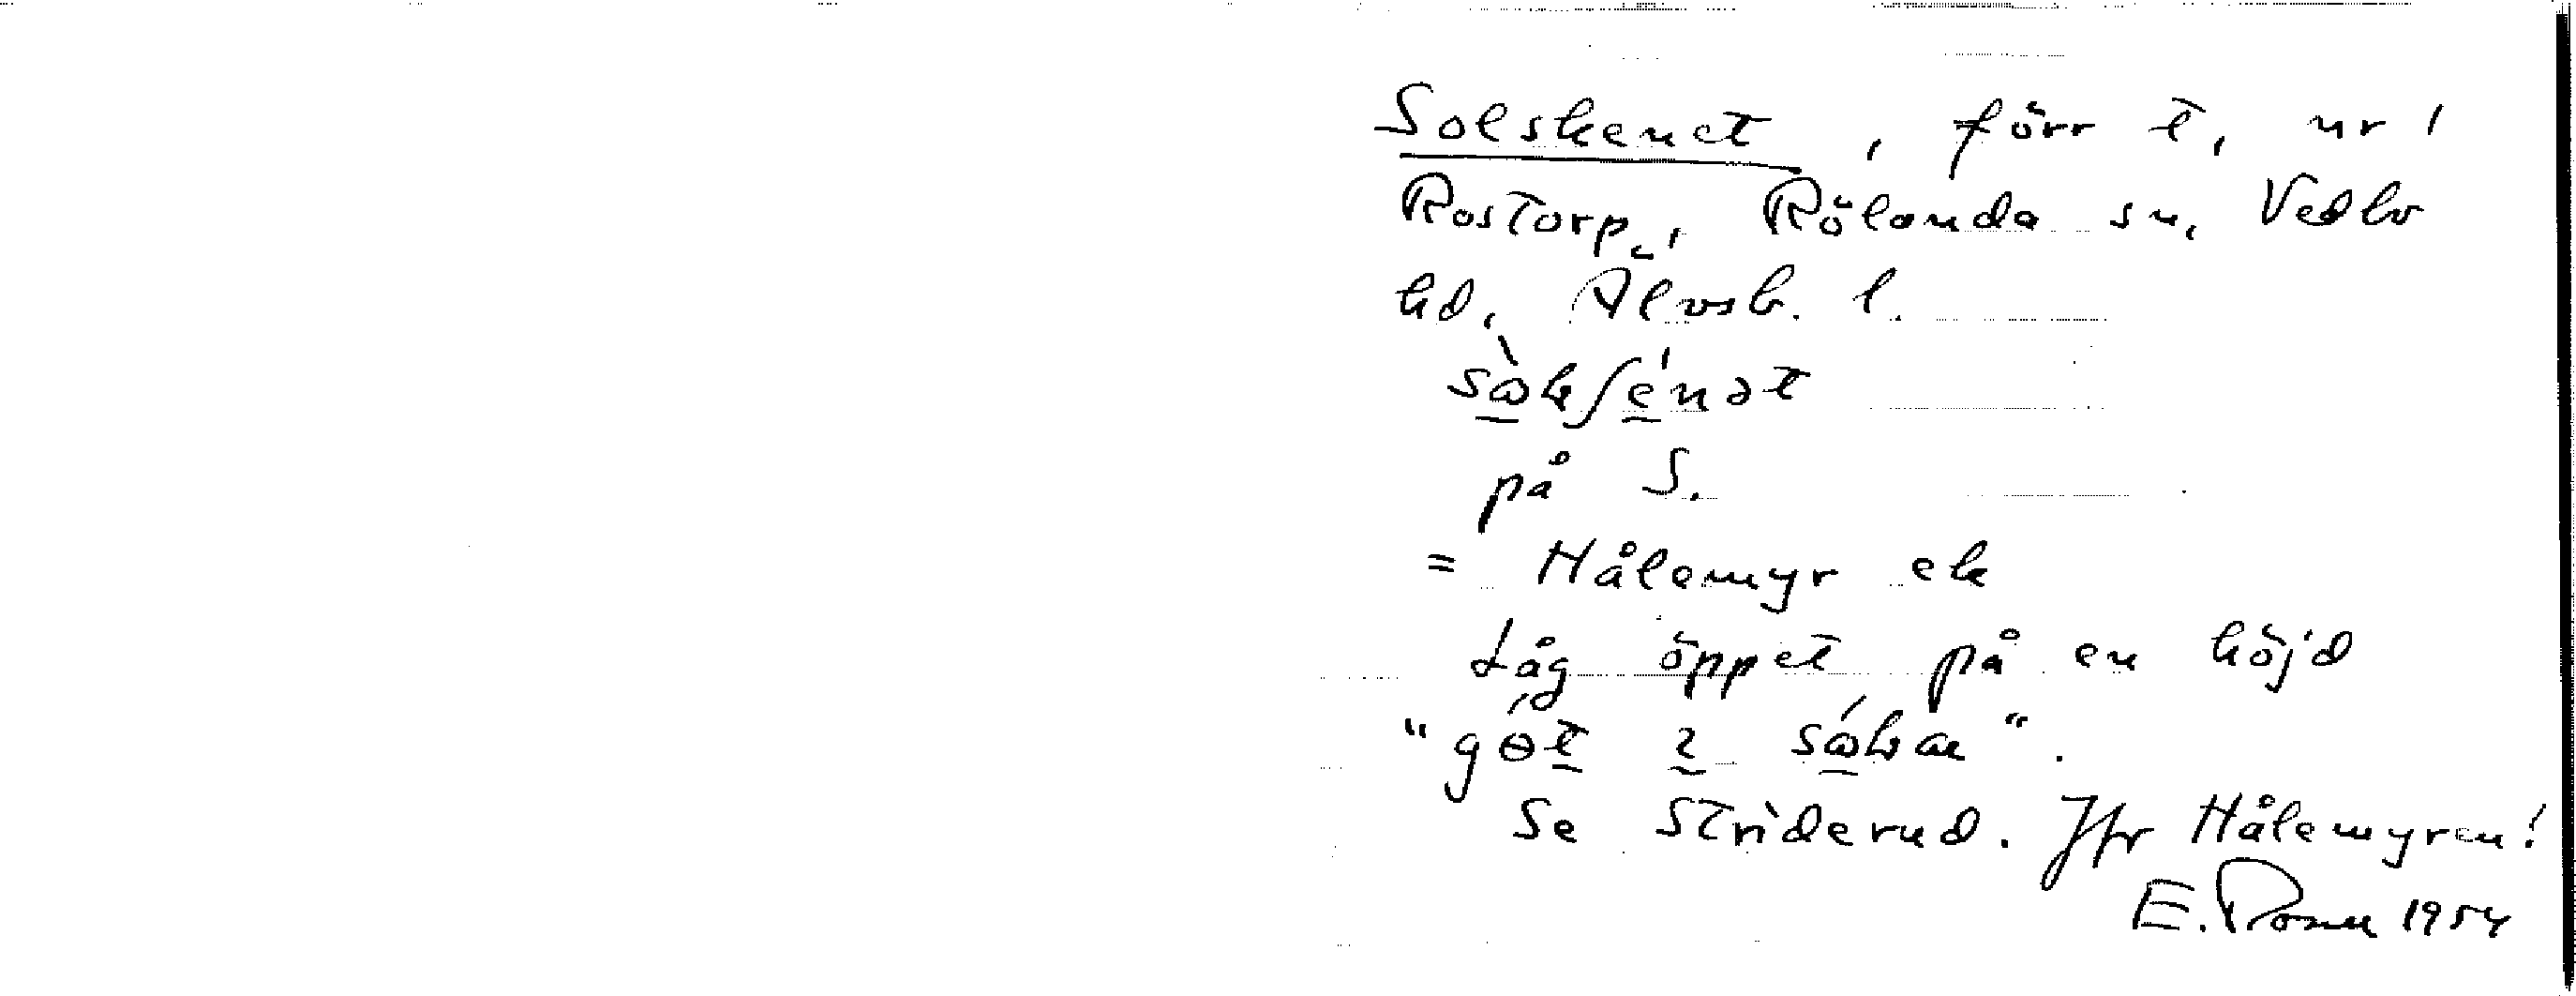 Solskenet, förr t, nr 1
Rostorp, Rölanda sn, Vedbo
hd, Älvsb. l.
på S.
= Hålemyr ek
Låg öppet på en höjd
Se Striderud. Jfr Hålemyren!
E. 1954